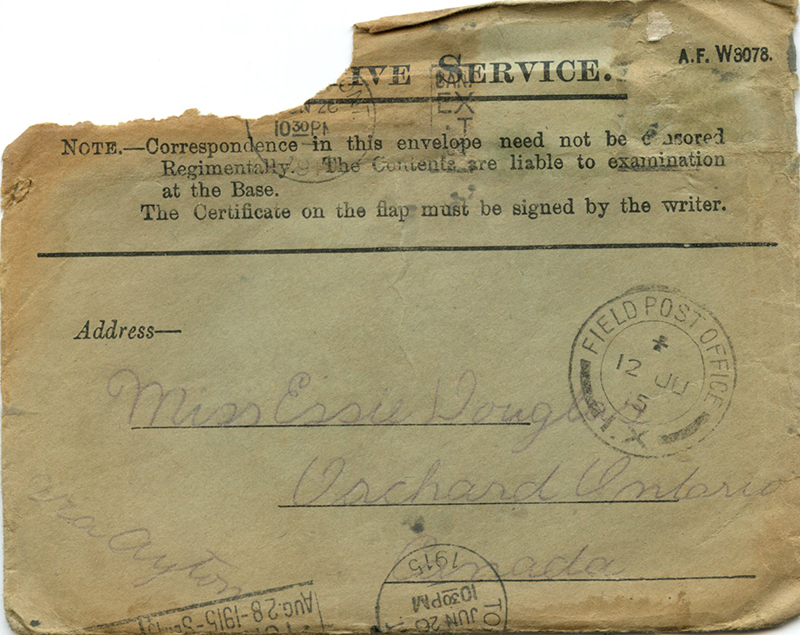 IVE SERVICE.
A.F. W3078.
N 26
1030PM
CAN.
EX
T
NOTE.—Correspondence in this envelope need not be censored
Regimentally. The Contents are liable to examination
at the Base.
The Certificate on the flap must be signed by the writer.
Address—
FIELD POST OFFICE
12 JU
15
X
Miss Essie Douglas
Orchard Ontario
via Ayton
Canada
1915
1030PM
JUN 26
TO
AUG. 28-1915-S